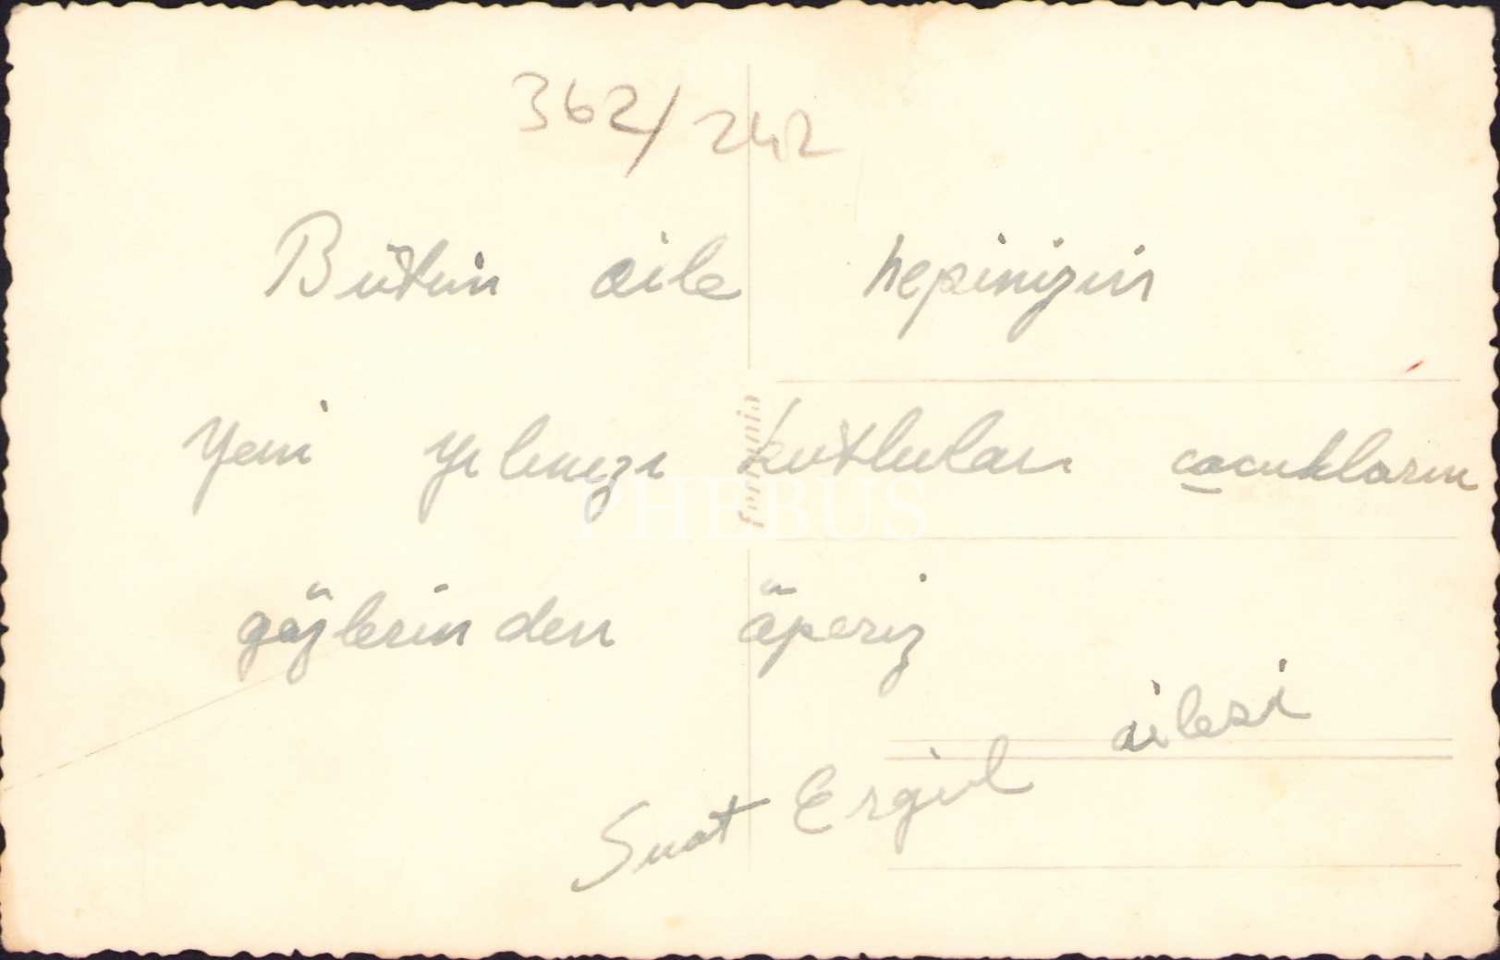 362/242
Bütün aile hepinizin
yeni yılınızı kutlular cocukların
gözlerinden äperiz
Suat Ergül ailesi
ferrania
PHEBUS